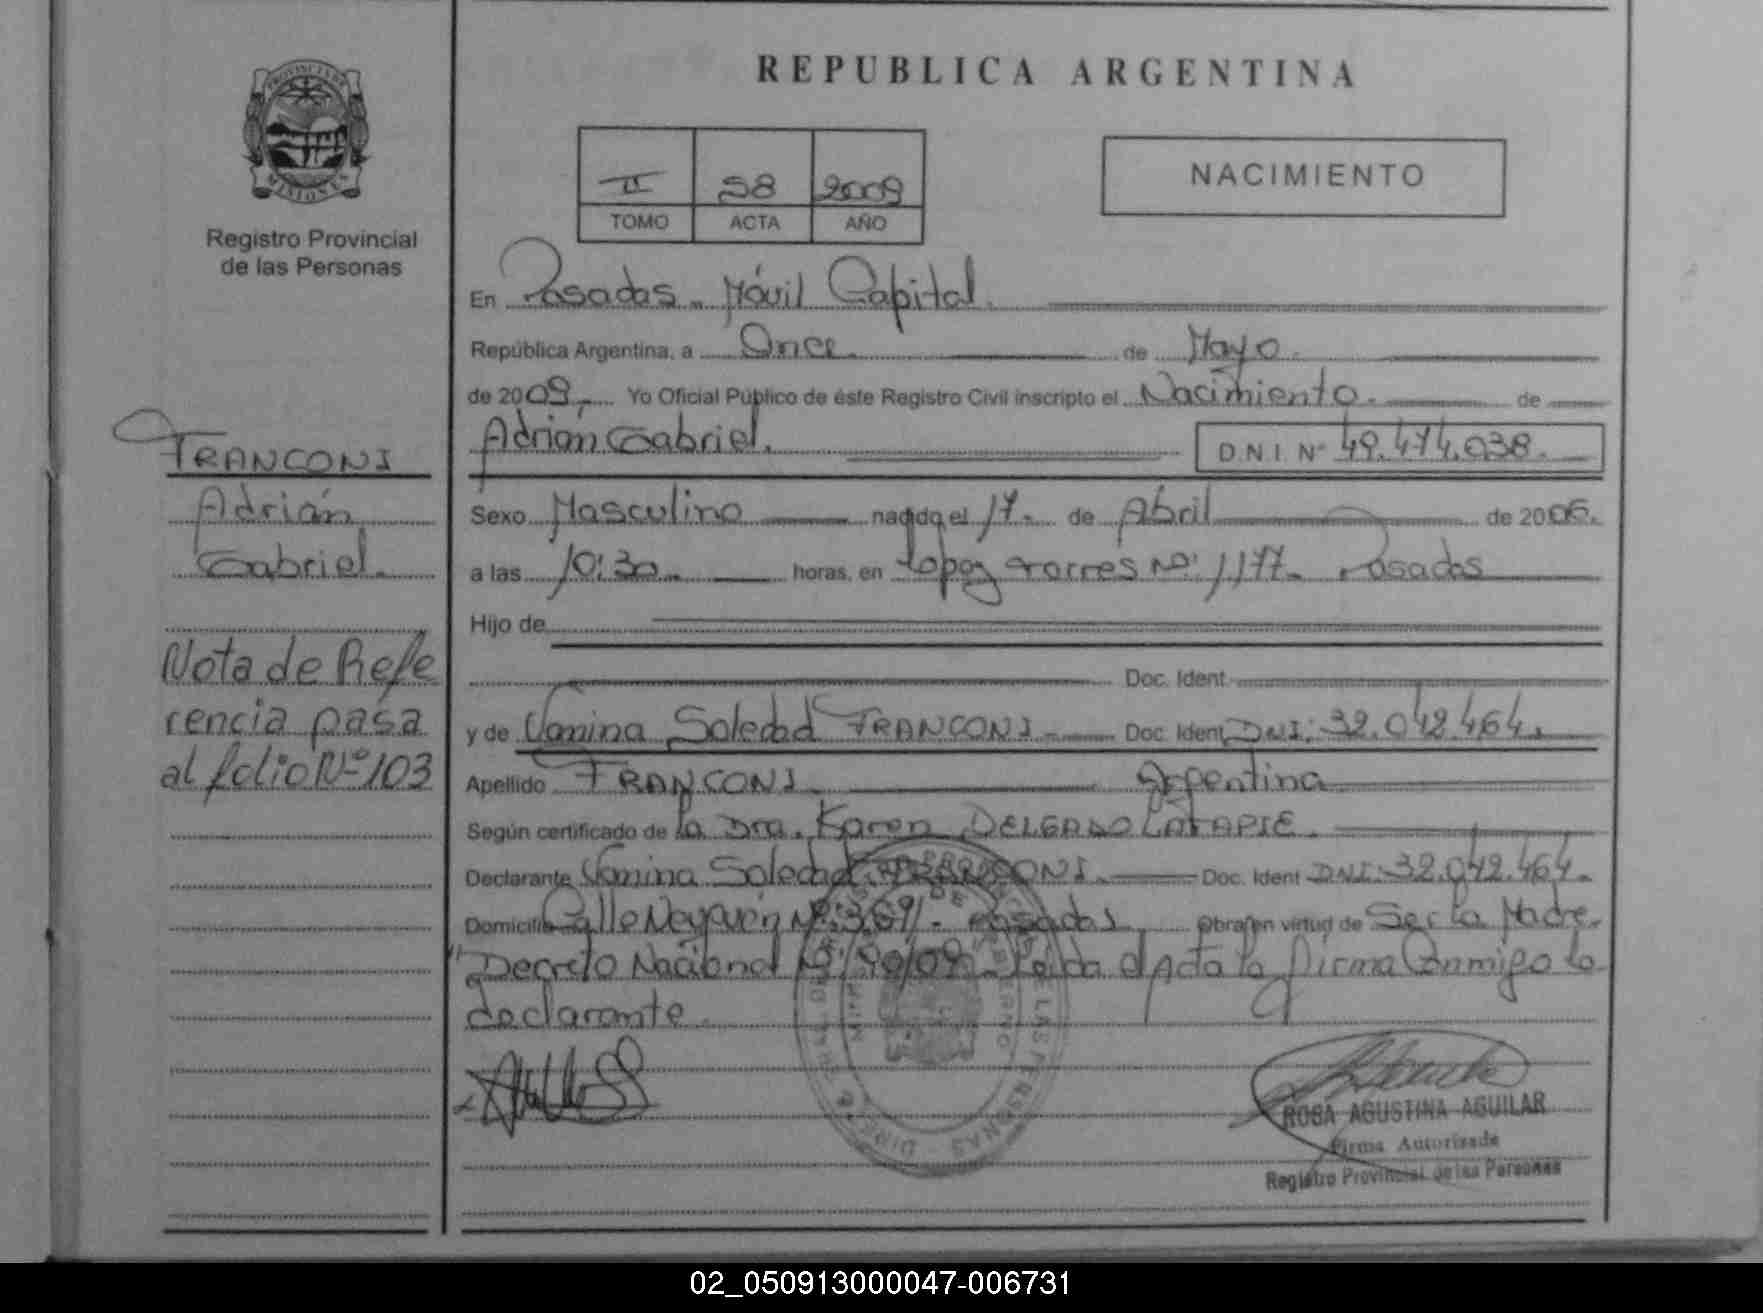 PROVINCIA DE
MISIONES
Registro Provincial
de las Personas
REPUBLICA ARGENTINA
II 98 2009
TOMO ACTA AÑO
NACIMIENTO
En Posadas - Móvil Capital.
República Argentina, a Once. de Mayo.
de 2009,- Yo Oficial Público de éste Registro Civil inscripto el Nacimiento. de
Adrián Gabriel. D.N.I. Nº 49.474.038.
FRANCONI
Adrián
Gabriel.
Sexo Masculino nacido el 17. de Abril de 2006.
a las 10:30 horas, en Lopez Torres Nº: 1177. Posadas
Hijo de
Doc. Ident.
y de Vanina Soledad FRANCONI. Doc. Ident DNI: 32.042.464.
Apellido FRANCONI. Argentina
Nota de Refe
rencia pasa
al folio Nº 103
Según certificado de la Dra. Karen DELGADO LATAPIE.
Declarante Vanina Soledad FRANCONI. Doc. Ident DNI: 32.042.464.
Domicilio Calle Neyuén Nº: 3691. Posadas Obra en virtud de Ser la Madre.
"Decreto Nacional Nº: 90/09. Leída el Acta la firma Conmigo la
declarante.
ROSA AGUSTINA AGUILAR
Firma Autorizada
Registro Provincial de las Personas
02_050913000047-006731